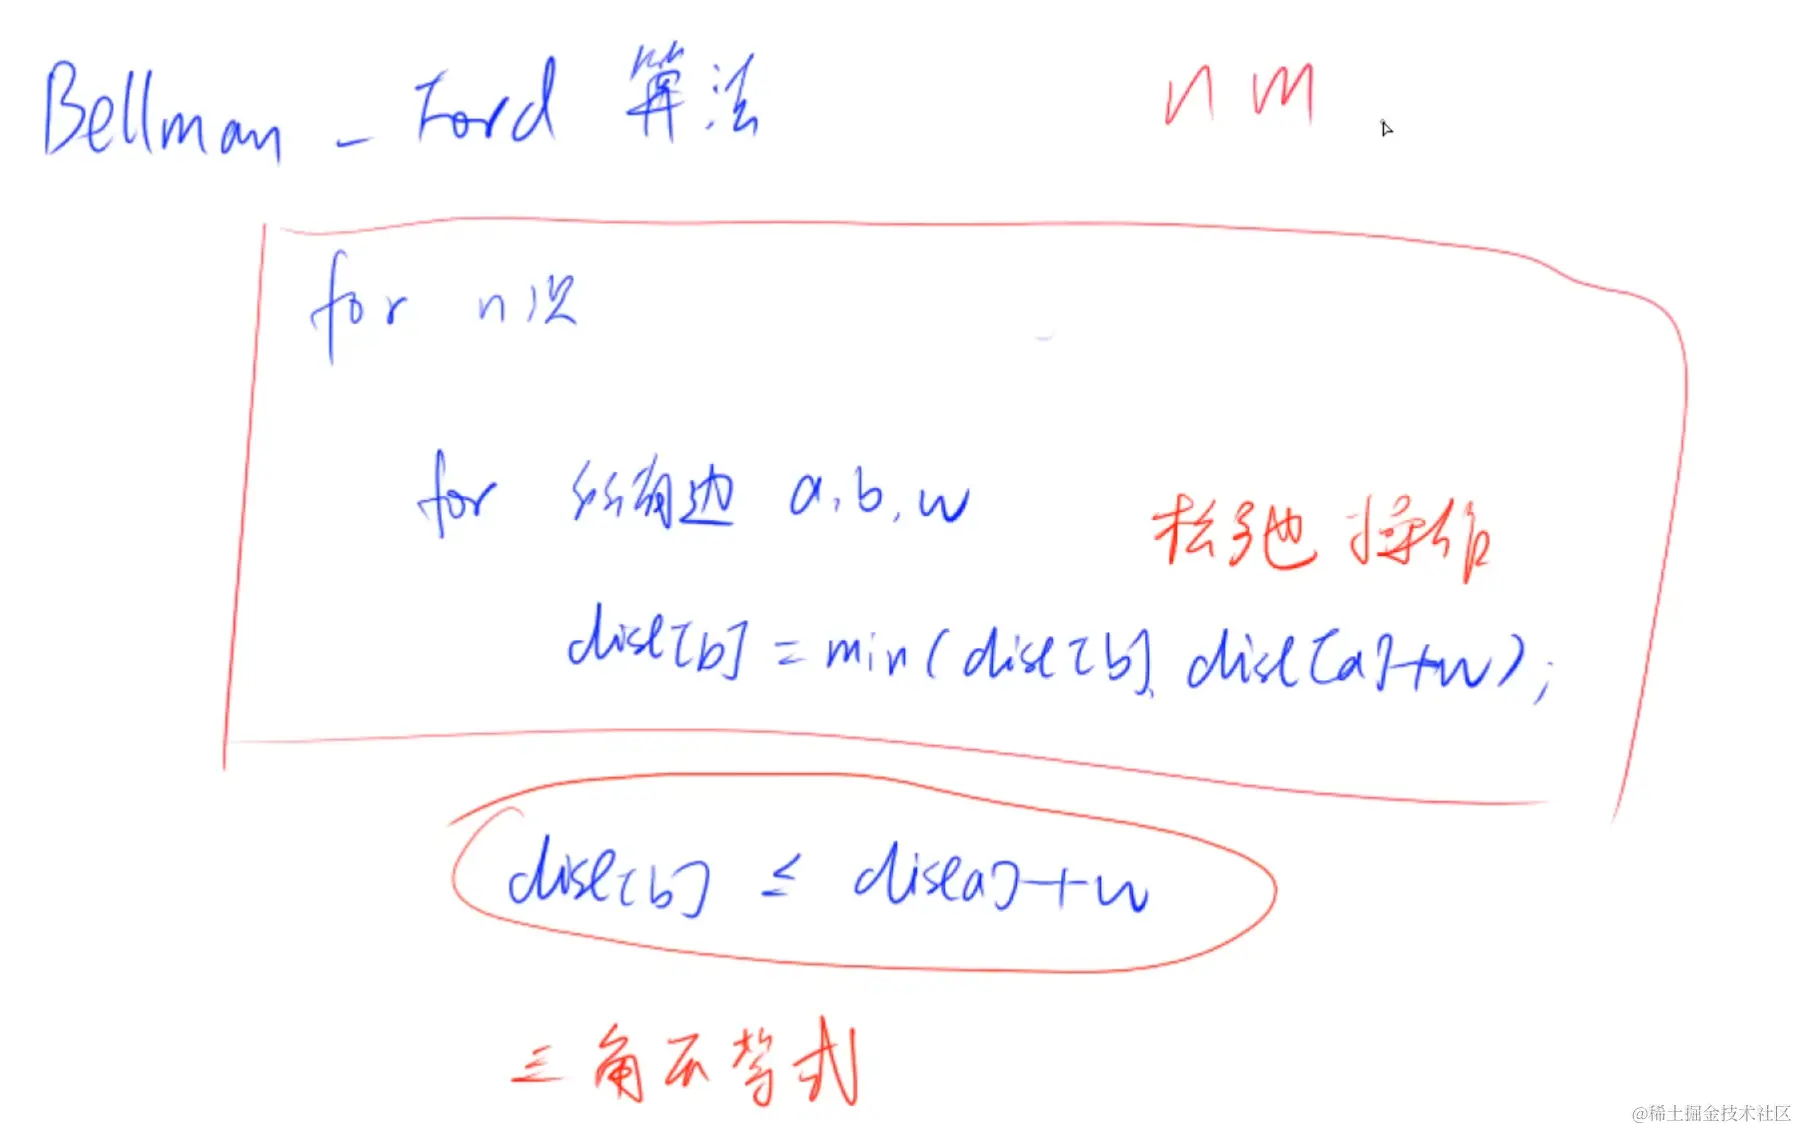 Bellman - Ford 算法
nm
for n次
for 所有边 a,b,w
松弛操作
dist[b] = min(dist[b], dist[a]+w);
dist[b] ≤ dist[a]+w
三角不等式
@稀土掘金技术社区